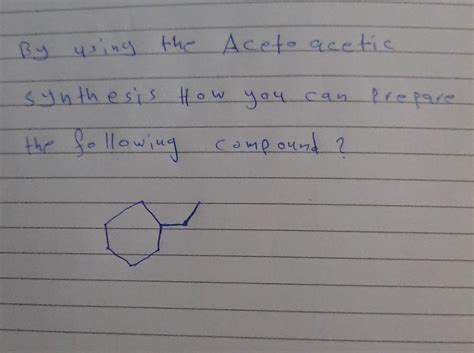 By using the Aceto acetic
synthesis How you can prepare
the following compound ?